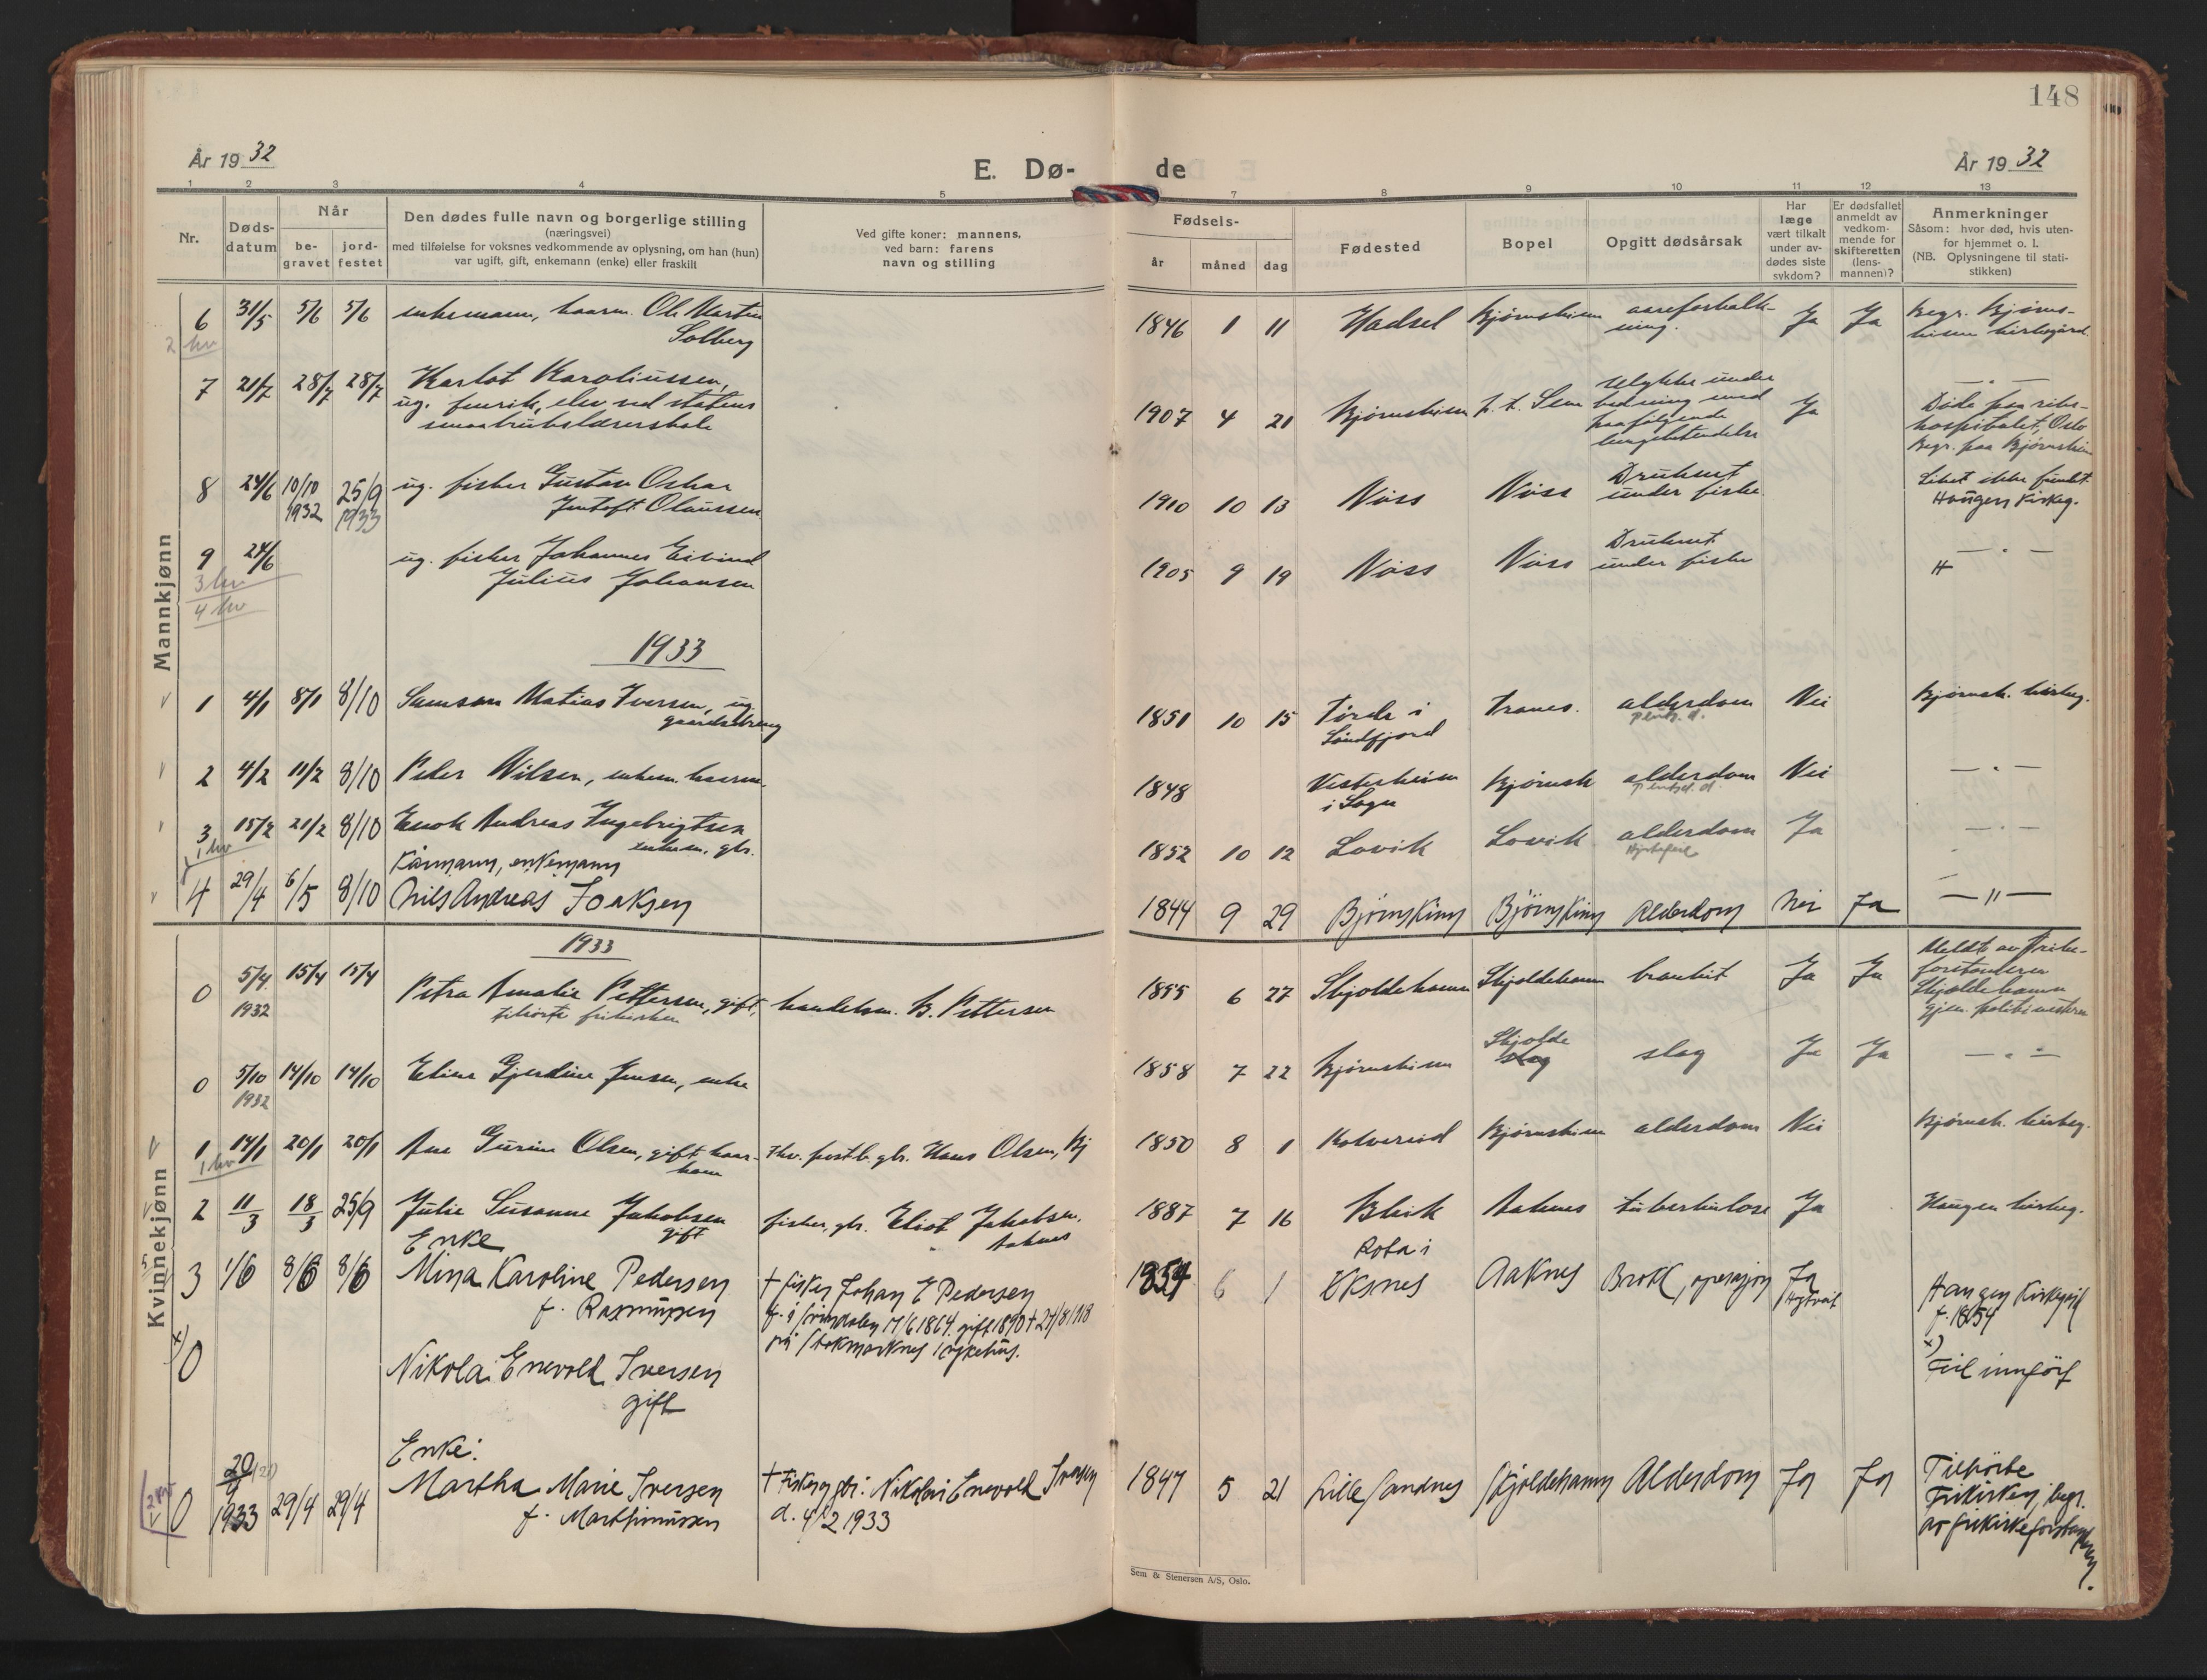 148
År 19 32
E. Dø-
de
År 19 32
1 2 3 4 5 7 8 9 10 11 12 13
Nr.
Døds-
datum
Når
be-
gravet
jord-
festet
Den dødes fulle navn og borgerlige stilling
(næringsvei)
med tilføielse for voksnes vedkommende av oplysning, om han (hun)
var ugift, gift, enkemann (enke) eller fraskilt
Ved gifte koner: mannens,
ved barn: farens
navn og stilling
Fødsels-
år måned dag
Fødested
Bopel
Opgitt dødsårsak
Har
læge
vært tilkalt
under av-
dødes siste
sykdom?
Er dødsfallet
anmeldt av
vedkom-
mende for
skifteretten
(lens-
mannen)?
Anmerkninger
Såsom: hvor død, hvis uten-
for hjemmet o. l.
(NB. Oplysningene til stati-
stikken)
Mannkjønn
6 31/5 5/6 5/6 enkemann, kaarm. Ole Martin
Solberg
1846 1 11 Hadsel Bjørnskinn aareforkalk-
ning. Ja Ja Begr. Bjørns-
kinn kirkegård.
2 hv
7 21/7 28/7 28/7 Karlot Karoliussen,
ug. fenrik, elev ved statens
smaabrukslærerskole
1907 4 21 Bjørnskinn p. t. Sem
ulykke under
badning med
paafølgende
lungebetendelse
Ja
Døde paa riks-
hospitalet, Oslo
Begr. paa Bjørnskinn
8 24/6 10/10 1932 25/9 1933 ug. fisker Gustav Oskar
Jentoft Olaussen
1910 10 13 Nöss Nöss Druknet
under fiske.
Liket ikke fundet.
Haugen Kirkeg.
9 24/6 ug. fisker Johannes Eivind
Julius Johansen
1905 9 19 Nöss Nöss Druknet
under fiske
— " —
3 hv
4 hv
1933
1 4/1 8/1 8/10 Samson Matias Iversen, ug.
gaardsdreng
1851 10 15 Førde i
Søndfjord Tranes. alderdom Nei Bjørnsk. kirkeg.
2 4/2 11/2 8/10 Peder Nilsen, enkem. kaarm.
1848 i Sogn Bjørnsk alderdom Nei — " —
3 15/2 21/2 8/10 Enok Andreas Ingebrigtsen
enkem. gbr.
1852 10 12 Lovik Lovik alderdom Ja — " —
1 hv
Kårmann, enkemann
4 29/4 6/5 8/10 Nils Andreas Isaksen
1844 9 29 Bjørnskinn Bjørnskinn Alderdom Nei Ja — " —
1933
Kvinnekjønn
0 5/4 1932 15/4 15/4 Petra Amalie Pettersen, gift,
tilhørte frikirken
handelsm. B. Pettersen
1855 6 27 Skjoldehamn Skjoldehamn Ja Ja
Meldt av frike-
forstanderen
Skjoldehamn
gjen. politimesteren
0 5/10 1932 14/10 14/10 Eline Gjerdine Jensen, enke
1858 7 22 Bjørnskinn Skjolde slag Ja Ja — " —
1 14/1 20/1 20/1 Ane Gurine Olsen, gift kaar-
kone
Fhv. postb. gbr. Hans Olsen, Bj
1850 8 1 Kolvereid Bjørnskinn alderdom Nei Bjørnsk. kirkeg.
1 hv
2 11/3 18/3 25/9 Julie Susanne Jakobsen
gift
fisker, gbr. Eliot Jakobsen.
Aaknes
1887 7 16 Bleik Aaknes tuberkulose Ja Haugen kirkeg.
Enke
3 1/6 8/6 8/6 Mina Karoline Pedersen
f. Rasmussen
† fisker Johan E Pedersen
17/6 1864. gift 1890 † 27/8 1918
på Stokmarknes sykehus.
1854 6 1 Rota i
Eksnes Aaknes Brokk, operasjon Ja
Haugen Kirkegård
f. 1854
x)
0 Nikolai Enevold Iversen
gift
x)
Feil innført
Enke:
0 20/4 (21) 1933 29/4 29/4 Martha Marie Iversen
f. Marthinussen
† Fisker og gbr: Nikolai Enevold Iversen
d. 4/2 1933
1847 5 21 Lille Sandnes Skjoldehamn Alderdom Ja Ja
Tilhørte
Frikirken, begr.
av frikirkeforstanderen.
Sem & Stenersen A/S, Oslo.